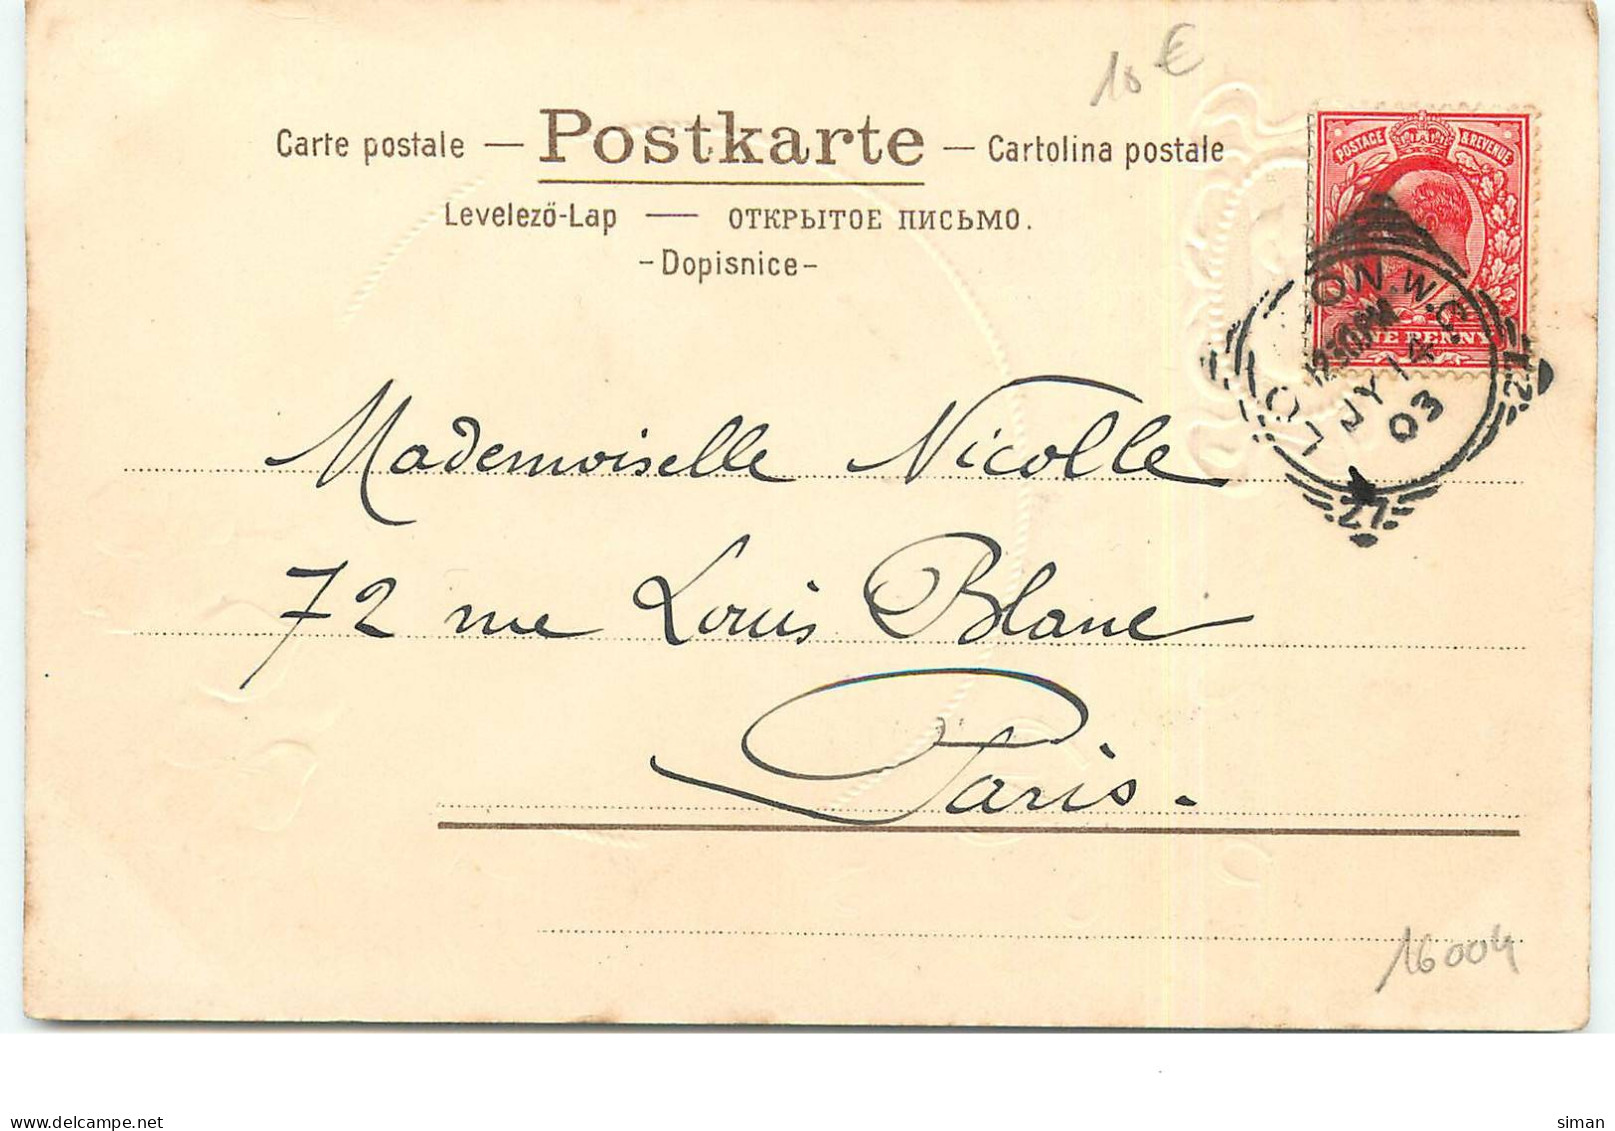 10 €
Carte postale — Postkarte — Cartolina postale
Levelező-Lap — ОТКРЫТОЕ ПИСЬМО.
- Dopisnice -
POSTAGE & REVENUE
ONE PENNY
LONDON.W.C.
12.30PM
JY 14
03
27
27
Mademoiselle Nicolle
72 rue Louis Blanc
Paris.
16004
www.delcampe.net
siman